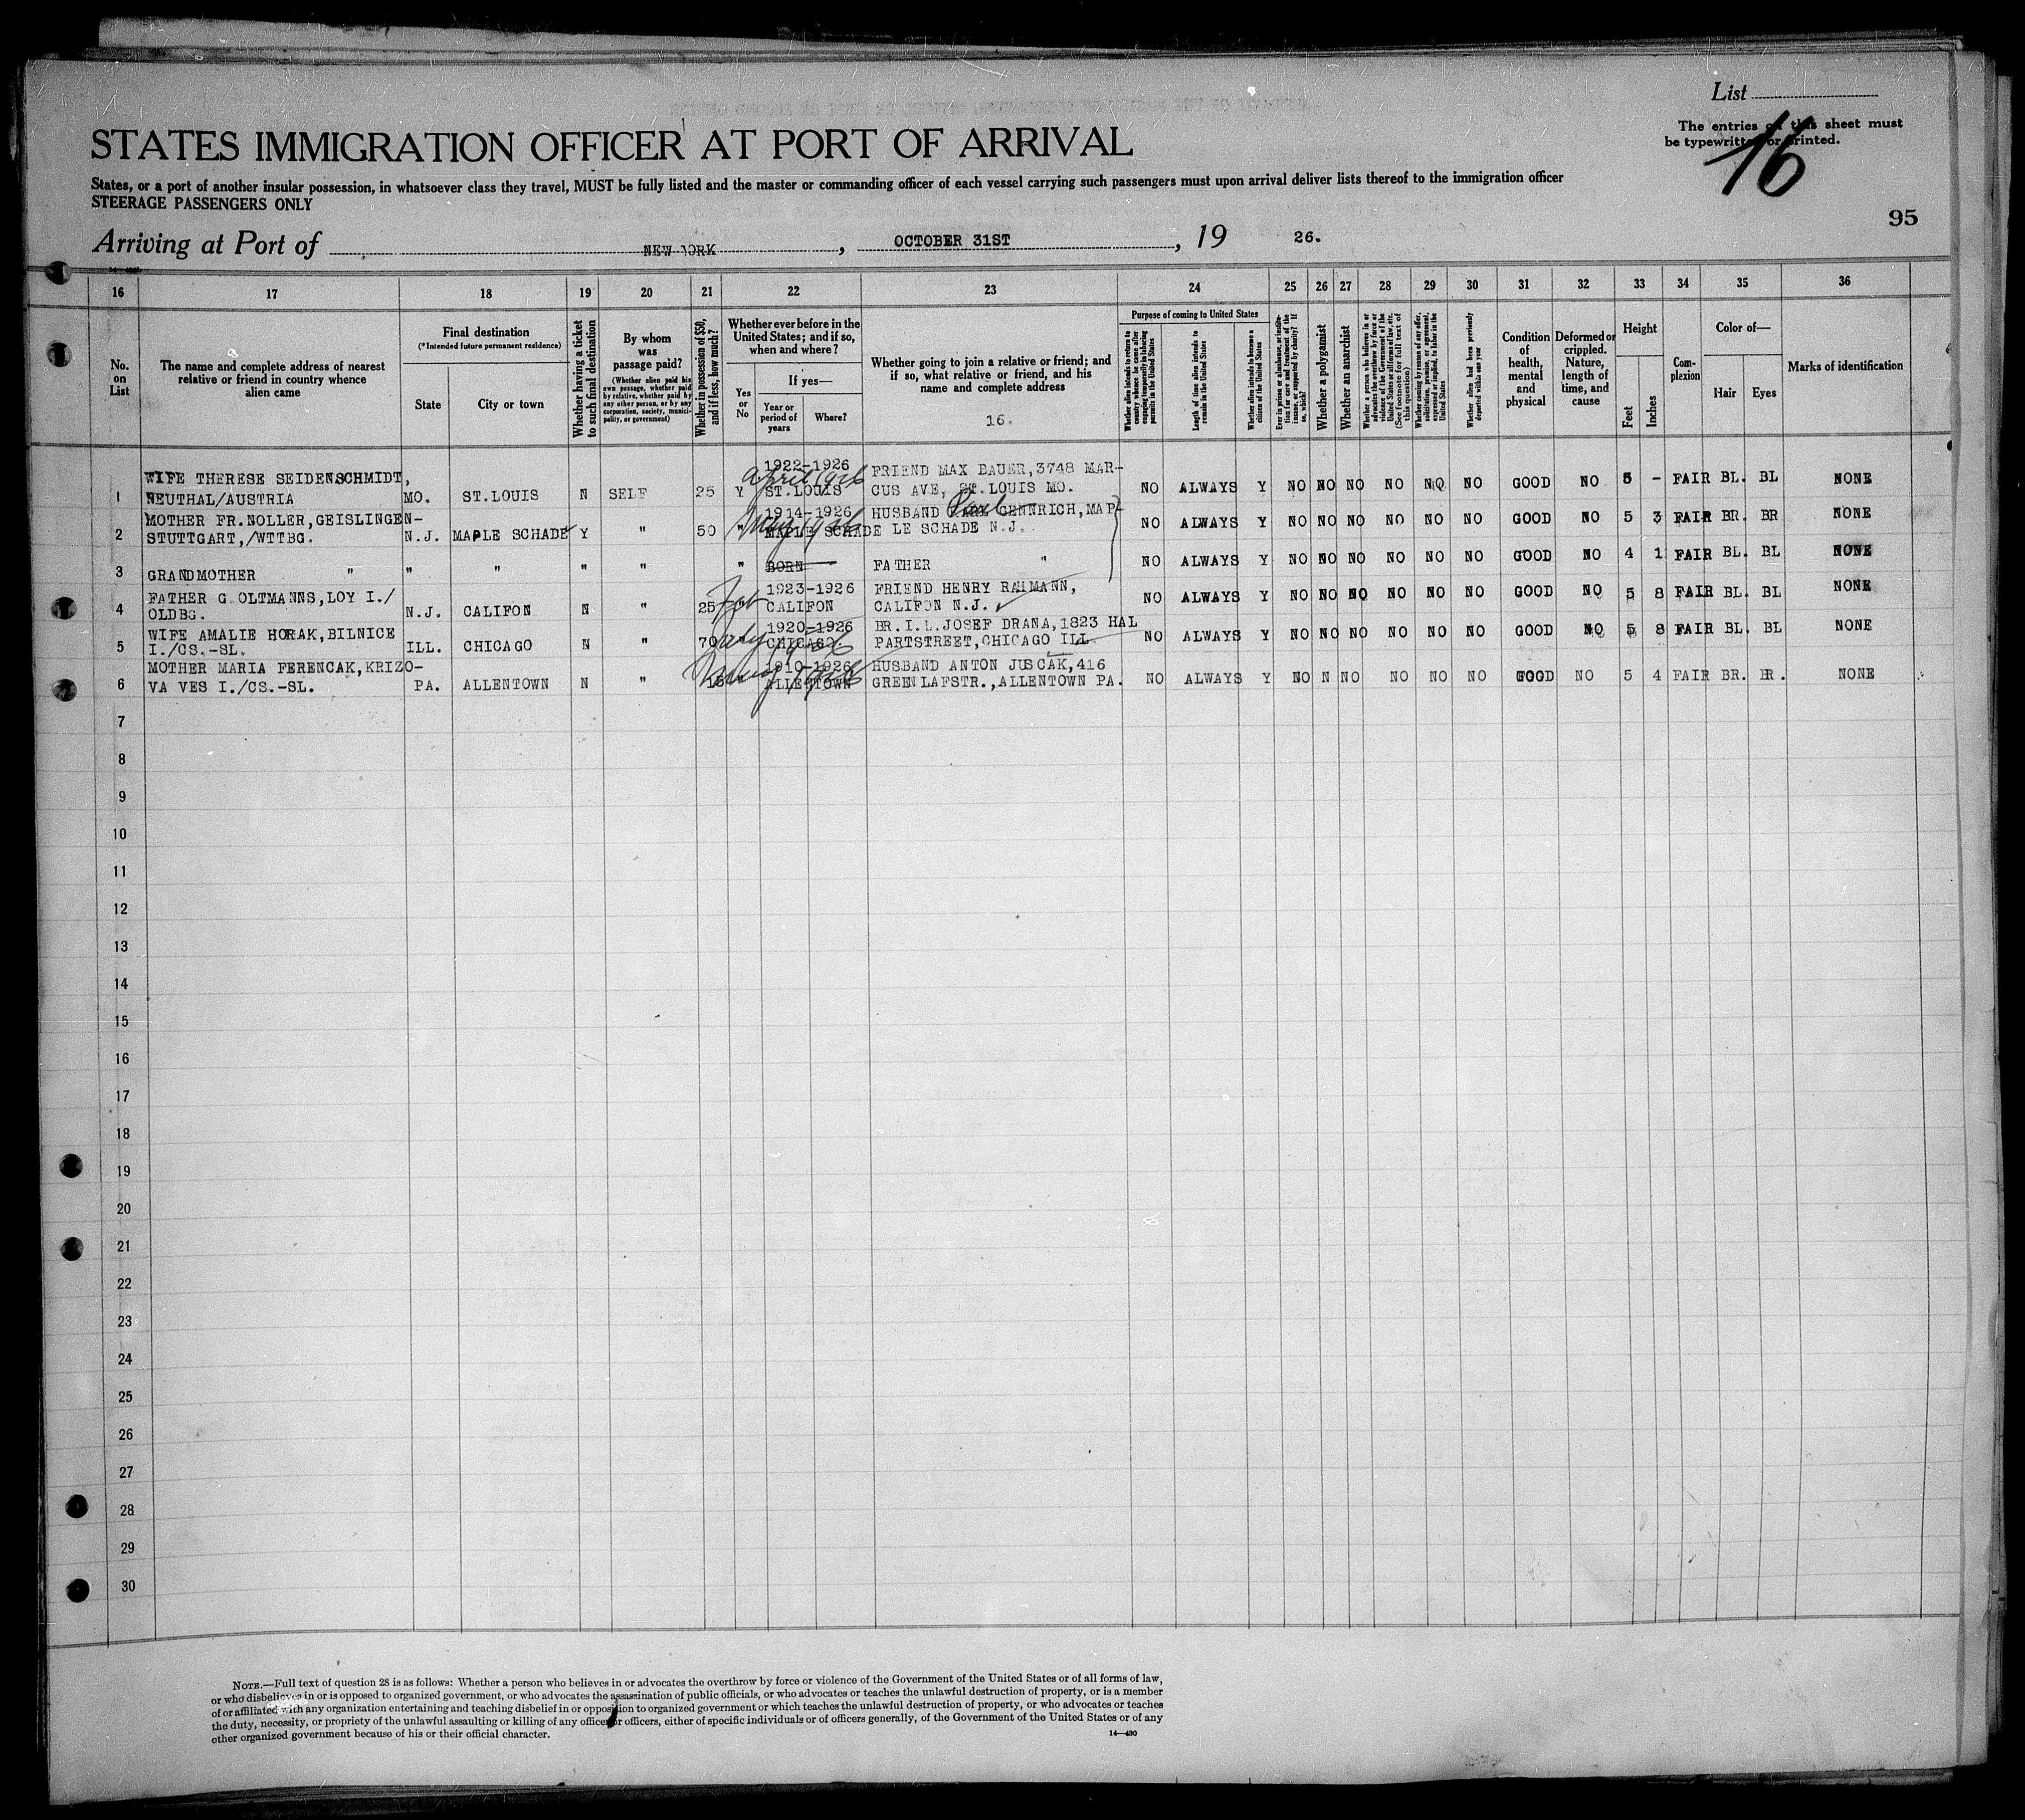 List
The entries on this sheet must
be typewritten or printed.
16
STATES IMMIGRATION OFFICER AT PORT OF ARRIVAL
States, or a port of another insular possession, in whatsoever class they travel, MUST be fully listed and the master or commanding officer of each vessel carrying such passengers must upon arrival deliver lists thereof to the immigration officer
STEERAGE PASSENGERS ONLY
95
Arriving at Port of NEW YORK, OCTOBER 31ST, 19 26.
16 17 18 19 20 21 22 23 24 25 26 27 28 29 30 31 32 33 34 35 36
No. on List
The name and complete address of nearest relative or friend in country whence alien came
Final destination
(*Intended future permanent residence)
State
City or town
Whether having a ticket to such final destination
By whom was passage paid?
(Whether alien paid his own passage, whether paid by relative, whether paid by any other person, or by any corporation, society, municipality, or government)
Whether in possession of $50, and if less, how much?
Whether ever before in the United States; and if so, when and where?
Yes or No
If yes—
Year or period of years
Where?
Whether going to join a relative or friend; and if so, what relative or friend, and his name and complete address
16.
Purpose of coming to United States
Whether alien intends to return to country whence he came after engaging temporarily in laboring pursuits in the United States
Length of time alien intends to remain in the United States
Whether alien intends to become a citizen of the United States
Ever in prison or almshouse, or institution for care and treatment of the insane, or supported by charity? If so, which?
Whether a polygamist
Whether an anarchist
Whether a person who believes in or advocates the overthrow by force or violence of the Government of the United States or all forms of law, etc. (See footnote for full text of this question)
Whether coming by reason of any offer, solicitation, promise, or agreement, expressed or implied, to labor in the United States
Whether alien had been previously deported within one year
Condition of health, mental and physical
Deformed or crippled. Nature, length of time, and cause
Height
Feet
Inches
Complexion
Color of—
Hair
Eyes
Marks of identification
1 WIFE THERESE SEIDENSCHMIDT, 1922-1926 FRIEND MAX BAUER,3748 MAR-
NEUTHAL/AUSTRIA MO. ST.LOUIS N SELF 25 Y April 1926 ST.LOUIS CUS AVE, ST.LOUIS MO. NO ALWAYS Y NO NO NO NO NO NO GOOD NO 5 - FAIR BL. BL NONE
2 MOTHER FR.NOLLER,GEISLINGEN- 1914-1926 HUSBAND GENNRICH,MAP-
STUTTGART,/WTTBG. N.J. MAPLE SCHADE Y " 50 " May 1926 MAPLE SCHADE LE SCHADE N.J. NO ALWAYS Y NO NO NO NO NO NO GOOD NO 5 3 FAIR BR. BR NONE
3 GRANDMOTHER " " " " " " BORN FATHER " NO ALWAYS Y NO NO NO NO NO NO GOOD NO 4 1 FAIR BL. BL NONE
4 FATHER G.OLTMANNS,LOY I./ 1923-1926 FRIEND HENRY RAHMANN,
OLDBG. N.J. CALIFON N " 25 CALIFON CALIFON N.J. NO ALWAYS Y NO NO NO NO NO NO GOOD NO 5 8 FAIR BL. BL NONE
5 WIFE AMALIE HORAK,BILNICE 1920-1926 BR.I.L.JOSEF DRANA,1823 HAL
I./CS.-SL. ILL. CHICAGO N 70 CHICAGO PARTSTREET,CHICAGO ILL NO ALWAYS Y NO NO NO NO NO NO GOOD NO 5 8 FAIR BL. BL NONE
6 MOTHER MARIA FERENCAK,KRIZO- 1910-1926 HUSBAND ANTON JUSCAK,416
VA VES I./CS.-SL. PA. ALLENTOWN N " 15 ALLENTOWN GREENLAFSTR.,ALLENTOWN PA. NO ALWAYS Y NO N NO NO NO NO GOOD NO 5 4 FAIR BR. BR. NONE
7
8
9
10
11
12
13
14
15
16
17
18
19
20
21
22
23
24
25
26
27
28
29
30
NOTE.—Full text of question 28 is as follows: Whether a person who believes in or advocates the overthrow by force or violence of the Government of the United States or of all forms of law,
or who disbelieves in or is opposed to organized government, or who advocates the assassination of public officials, or who advocates or teaches the unlawful destruction of property, or is a member
of or affiliated with any organization entertaining and teaching disbelief in or opposition to organized government or which teaches the unlawful destruction of property, or who advocates or teaches
the duty, necessity, or propriety of the unlawful assaulting or killing of any officer or officers, either of specific individuals or of officers generally, of the Government of the United States or of any
other organized government because of his or their official character.
14—430